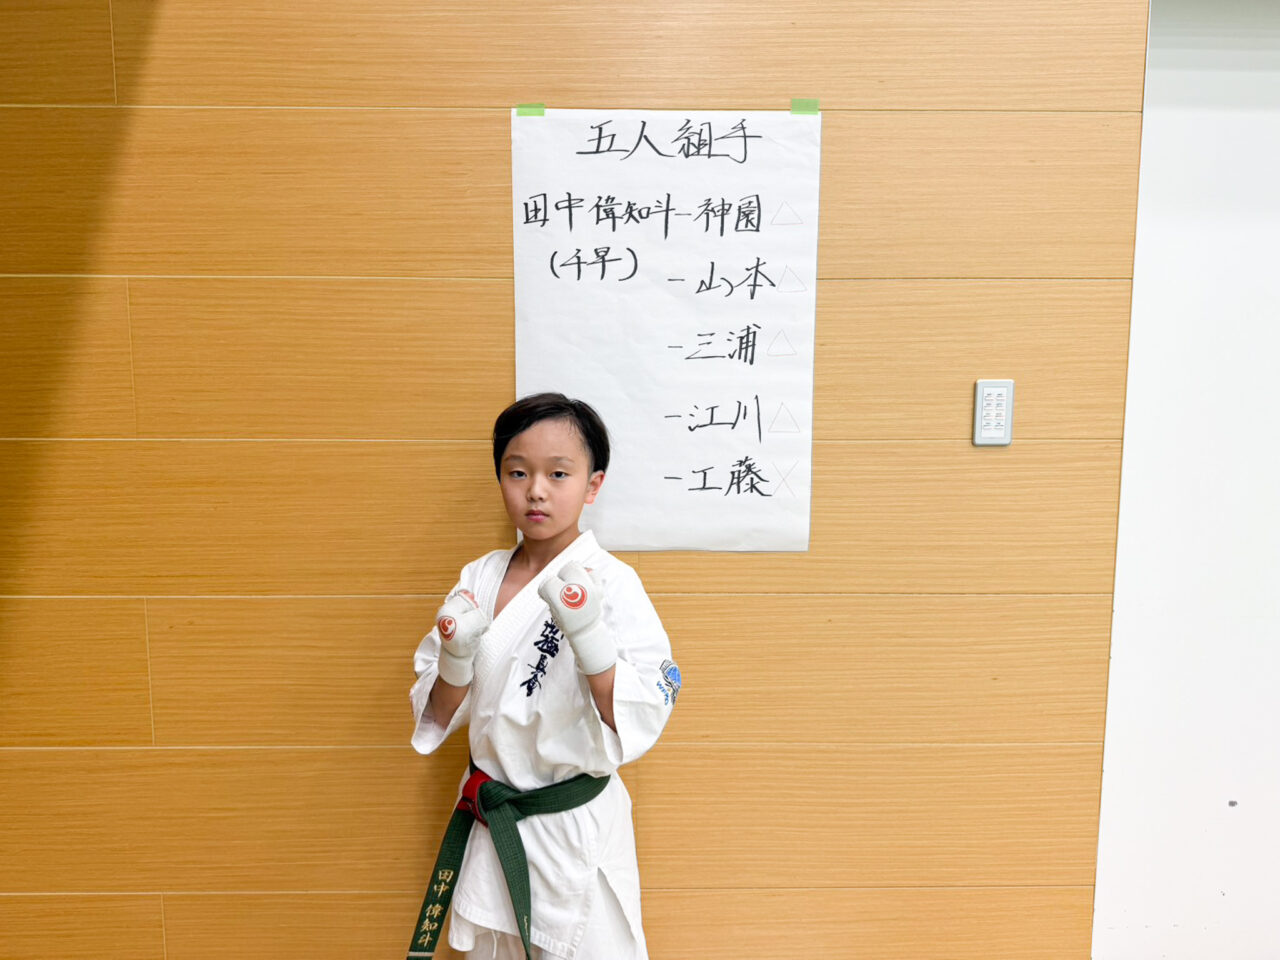 五人組手
田中偉知斗-神園△
(千早)
-山本△
-三浦△
-江川△
-工藤×
極真會
田中 偉知斗